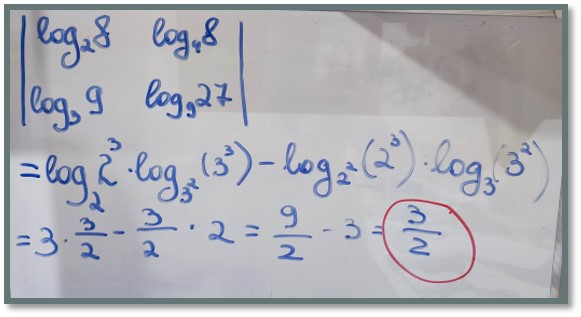 | log₂8 log₄8 |
| log₃9 log₉27 |
= log₂2³ · log₃²(3³) − log₂²(2³) · log₃(3²)
= 3 · 3/2 − 3/2 · 2 = 9/2 − 3 = 3/2